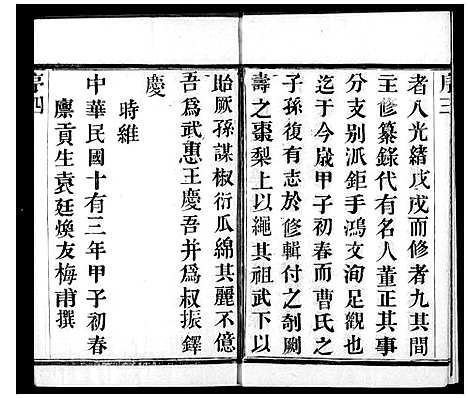 序三
者八光緒戊戌而修者九其間
主修纂錄代有名人董正其事
分支别派鉅手鴻文洵足觀也
迄于今歲甲子初春而曹氏之
子孫復有志於修輯付之剞劂
壽之棗梨上以繩其祖武下以
貽厥孫謀椒衍瓜綿其麗不億
吾爲武惠王慶吾并爲叔振鐸
慶
時維
中華民國十有三年甲子初春
廪貢生袁廷煥友梅甫撰
序四